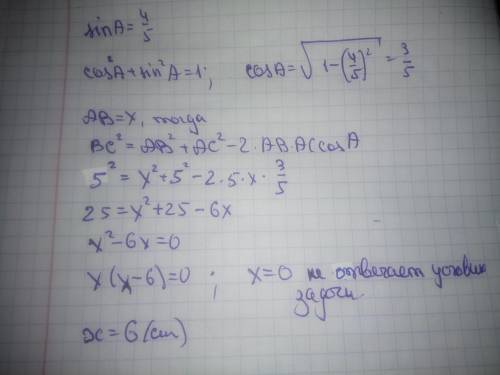 sinA = 4/5
cos²A + sin²A = 1; cosA = √(1 - (4/5)²) = 3/5
AB = x, тогда
BC² = AB² + AC² - 2 · AB · AC cosA
5² = x² + 5² - 2 · 5 · x · 3/5
25 = x² + 25 - 6x
x² - 6x = 0
x(x - 6) = 0 ; x = 0 не отвечает условию
задачи.
x = 6 (cm)